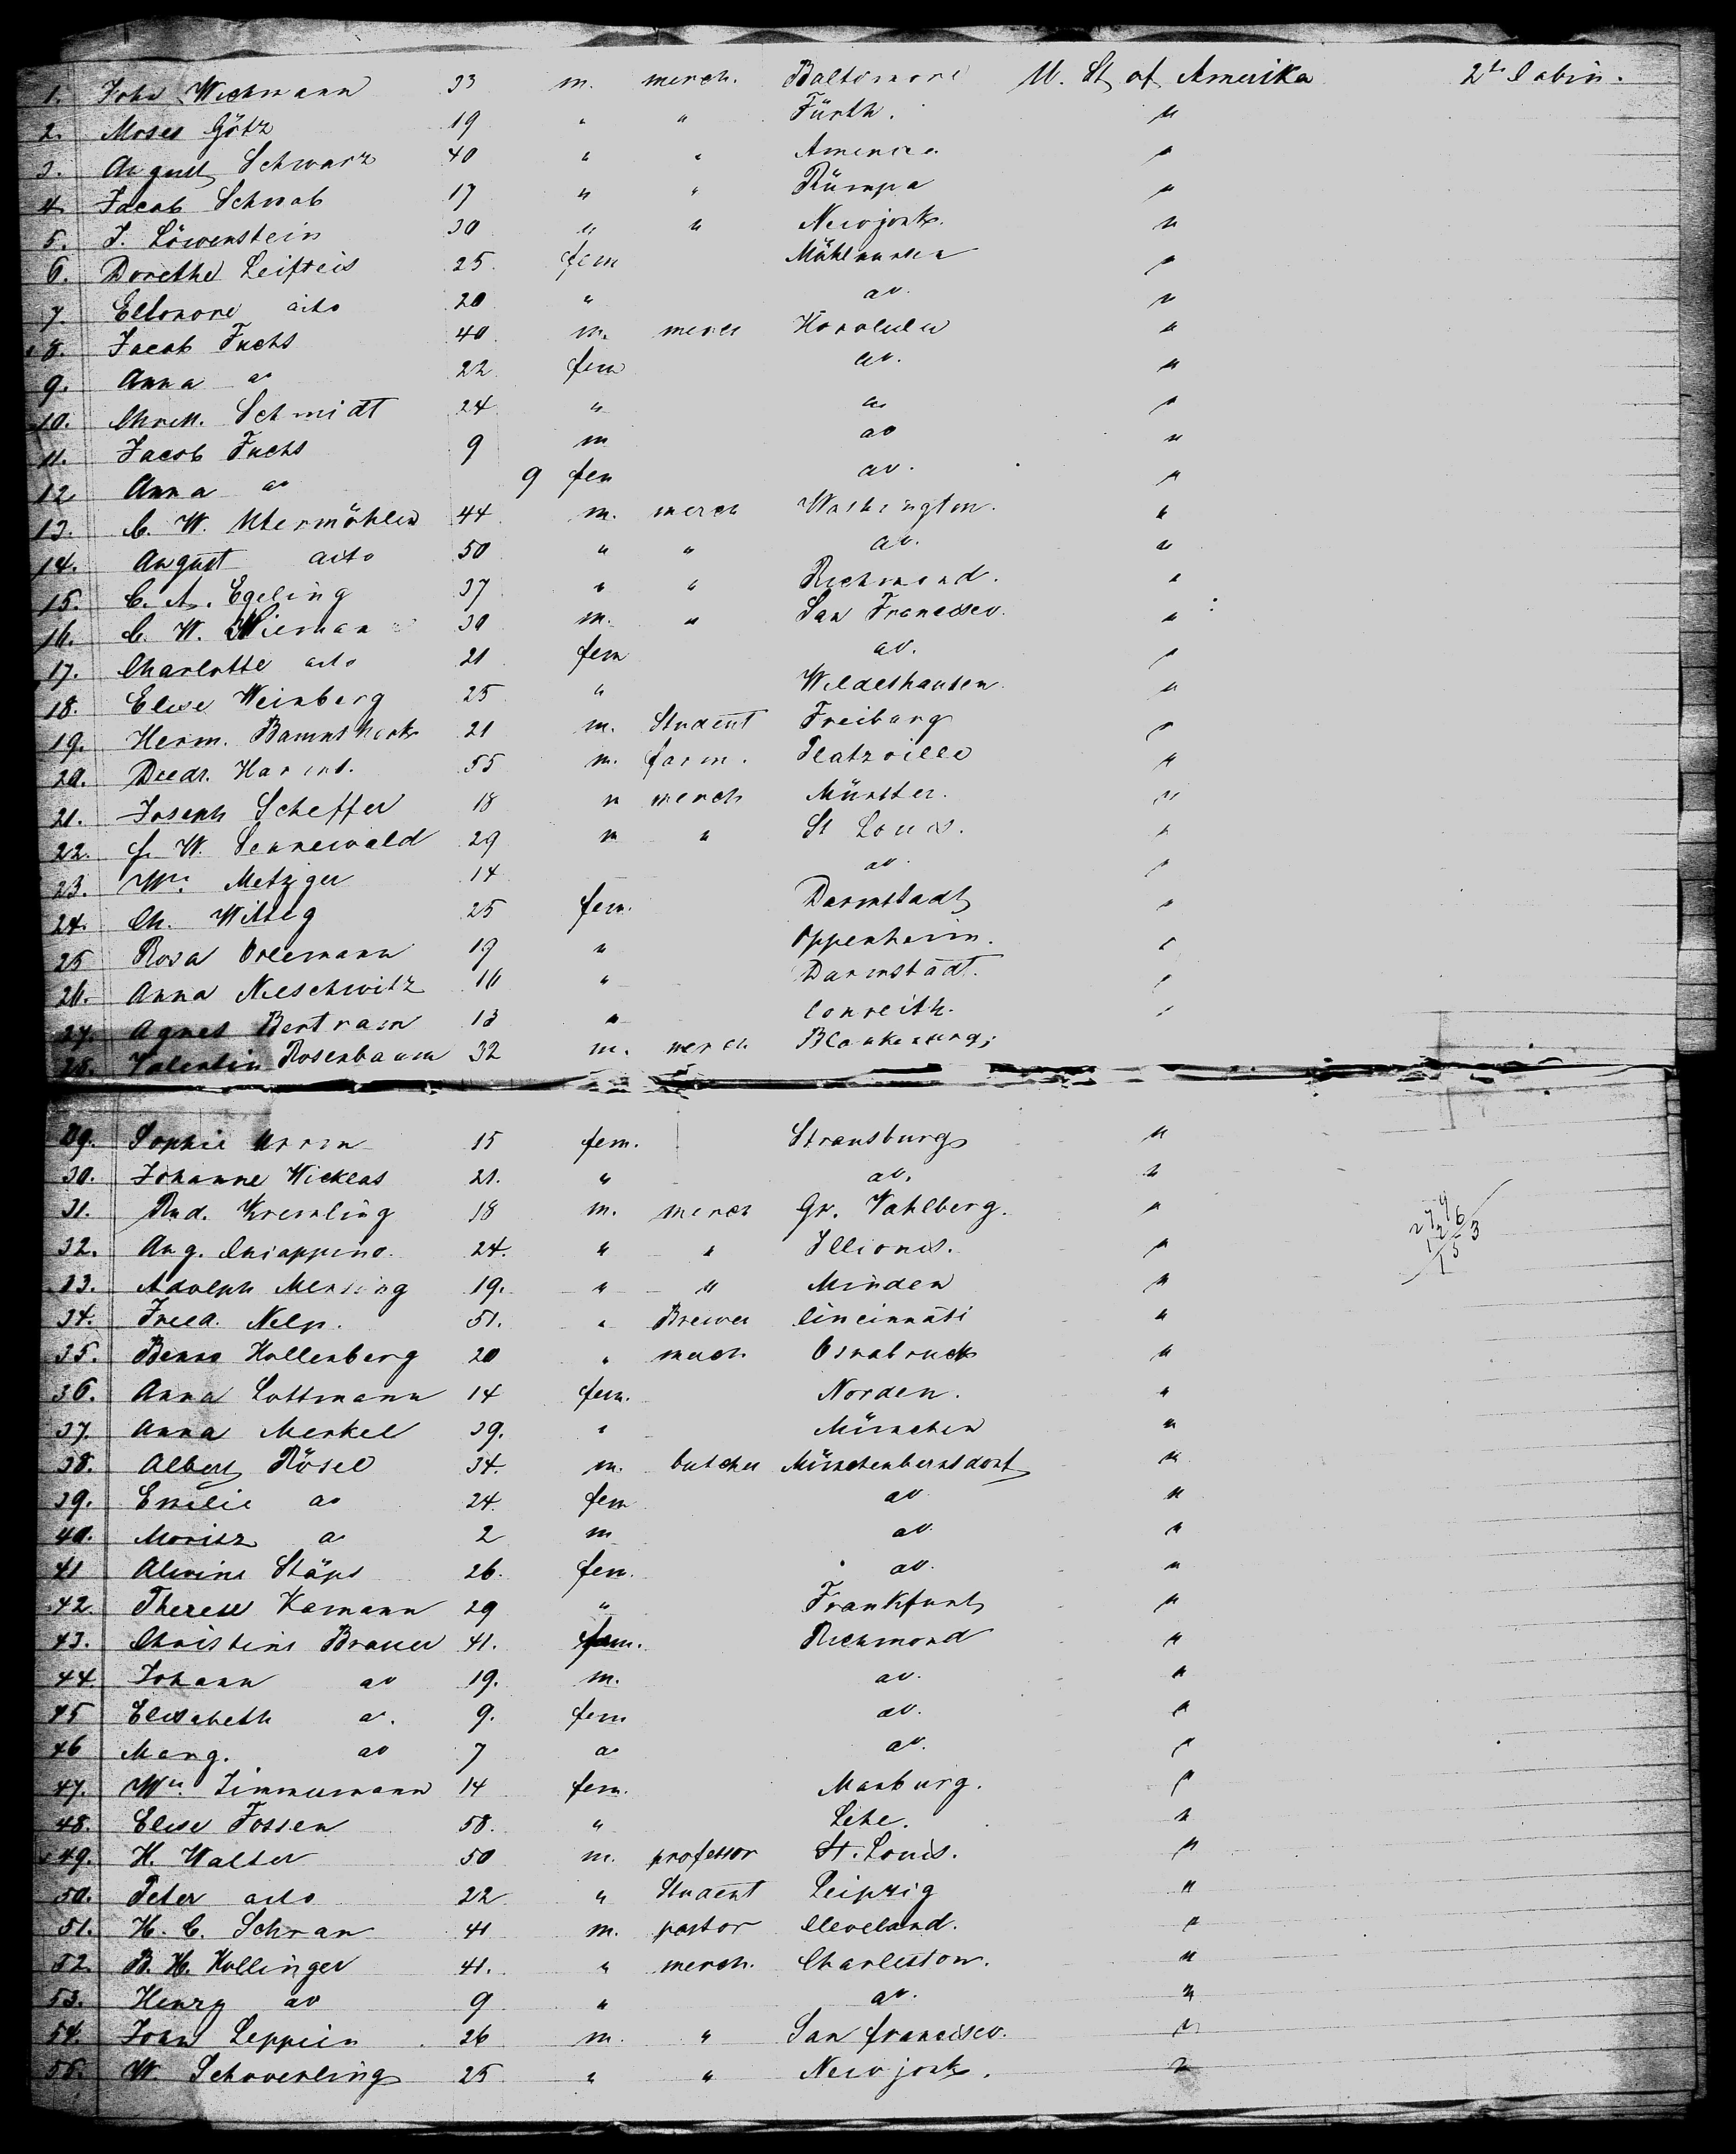 1. John Wichmann 33 m. merch. Baltimore U. St of Amerika 2te Cabin.
2. Moses Götz 19 " " Fürth. "
3. August Schwarz 40 " " America "
4. Jacob Schwab 17 " " Rümpa "
5. J. Löwenstein 30 " " Newjork. "
6. Dorethe Leifteis 25. fem Mühlhausen "
7. Eleonore dito 20 " do. "
8. Jacob Fuchs 40 m. merch Honolulu "
9. Anna do 22 fem do. "
10. Schmidt 24 " do "
11. Jacob Fuchs 9 m do "
12 Anna do 9 fem do. "
13. C. W. Utermöhlen 44 m. merch Washington. "
14. August dito 50 " " do. "
15. C. A. Egeling 37 " " Richmond. "
16. C. W. 30 m. " San Francisco. "
17. Charlotte dito 21 fem do. "
18. Elise Weinberg 25 " Wildeshausen. "
19. Herm. 21 m. Student Freiburg "
20. Diedr. Harms. 55 m. farm. Platzville "
21. Joseph Scheffer 18 " merch Münster. "
22. F. W. Sennewald 29 m " St Louis. "
23. Wm. Metzger 14 do. "
24. Ch. Wittig 25 fem. Darmstadt "
25 Rosa Orlemann 19 " Oppenheim. "
26. Anna Nieschwitz 16 " Darmstadt. "
27. Agnes Bertram 13 " Conreith. "
28. Valentin Rosenbaum 32 m. merch Blankenurg;
29. Sophie 15 fem. Strausburg "
30. Johanne Wicklas 21. " do. "
31. Rud. Kremling 18 m. merch Gr. Vahlberg. "
32. Aug. Chiappino 24. " " Illionis. "
33. Adolph Mensing 19. " " Minden "
34. Fried. 51. " Brewer Cincinnati "
35. Benno Hollenberg 20 " merch. Osnabruck "
36. Anna Lottmann 14 fem. Norden. "
37. Anna Menkel 39. " München "
38. Albert Rösel 34. m. butcher Münchenberntsdorf "
39. Emilie do 24. fem do "
40. Moritz do 2 m do. "
41 Alwine Stäps 26. fem. do. "
42. Therese Hamann 29 " Frankfurt "
43. Christine Brauer 41. fem. Richmond "
44 Johann do 19. m. do. "
45 Elisabeth do. 9. fem do. "
46 Marg. do 7 do do. "
47. Wm. Zimmermann 14 fem. Marburg. "
48. Elise Fossen 58. " Lehe. "
49. H. Walter 50 m. professor St. Louis. "
50. Peter dito 22 " Student Leipzig "
51. H. C. Schwan 41 m. pastor Cleveland. "
52. B. H. Kollinger 41. " merch. Charleston. "
53. Henry do 9 " do. "
54. John Leppien 26 m. " San francisco. "
55. W. Schoverling 25 " " Newjork. "